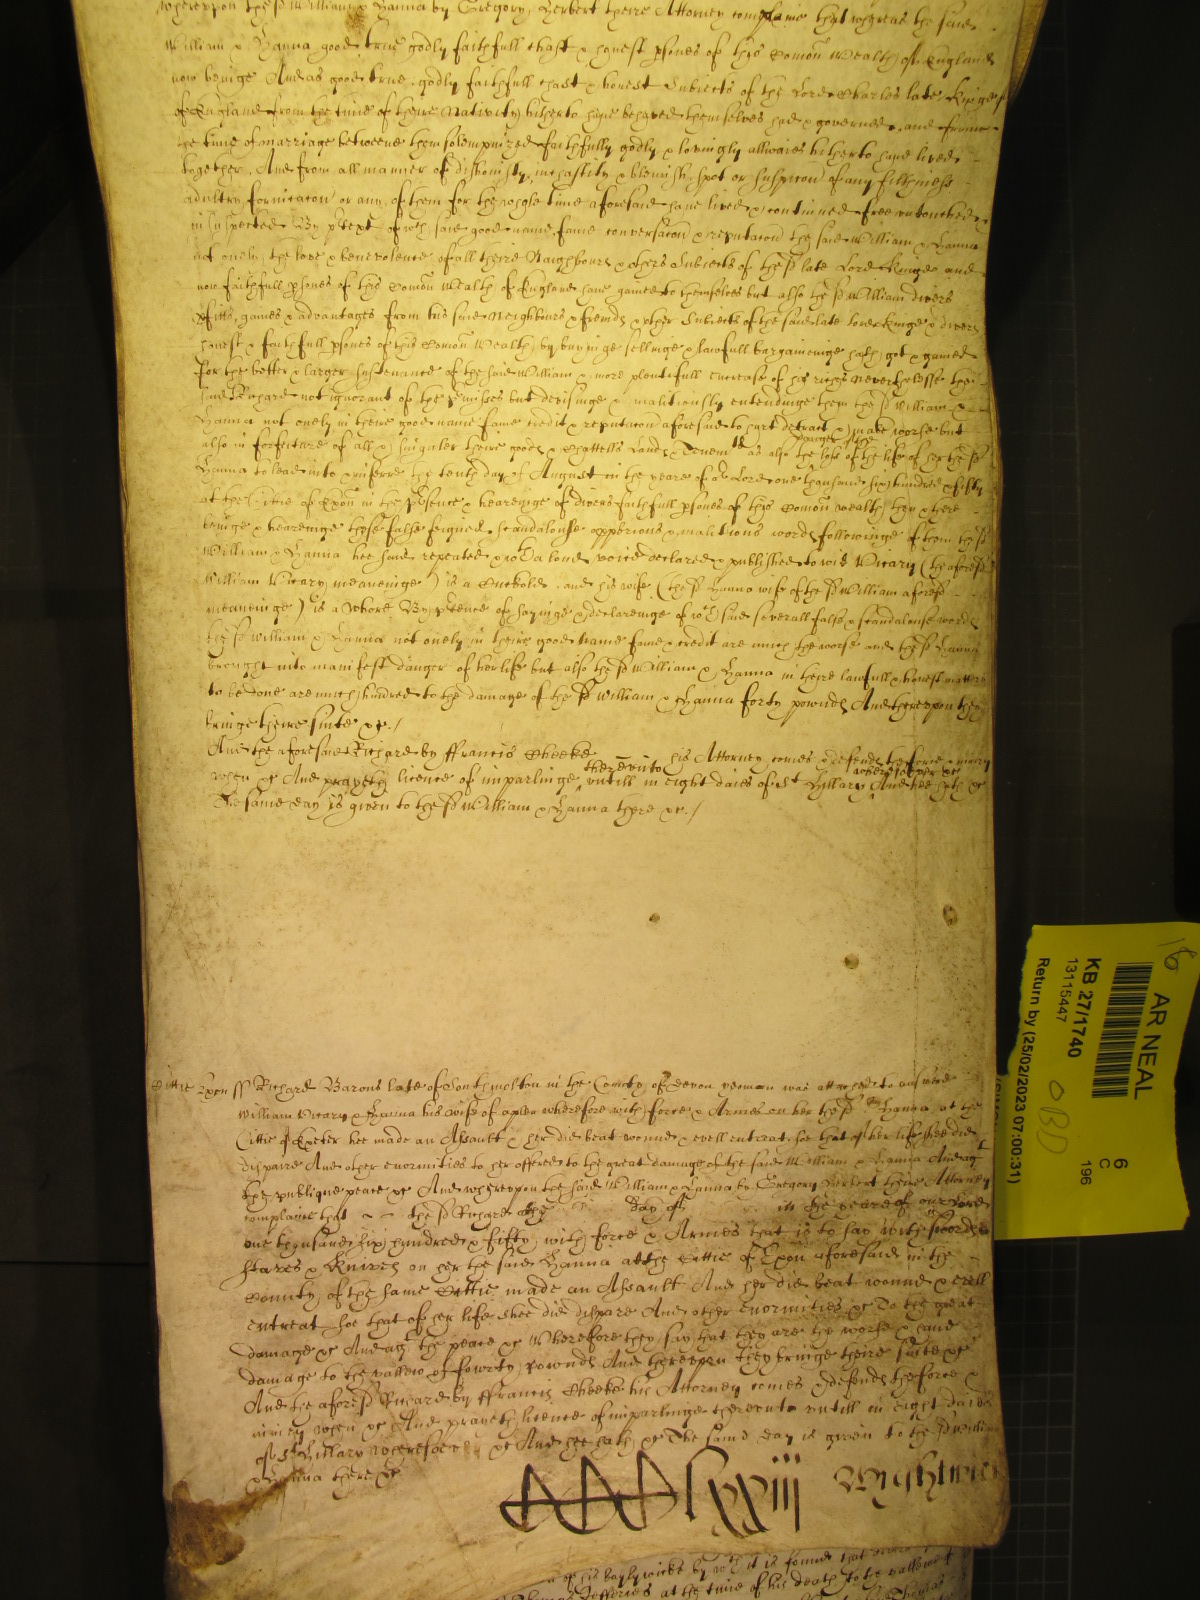 whereupon the sd William & Hanna by Gregory Herbert theire Attorney complaine that whereas the said
William & Hanna good true godly faithfull chast & honest psones of this Comon Wealth of England
now beinge And as good true godly faithfull chast & honest Subiects of the Lord Charles late Kinge
of England from the time of theire Nativity hitherto have behaved themselves had & governed and from
the time of marriage betweene them solempnized faithfully godly & lovingly allwaies hitherto have lived
together And from all manner of dishonesty, inchastity & blemish spot or suspicon of any filthiness
adultry fornicacon or any of them for the whole time aforesaid have lived & continued free untouched
unsuspected By ptext of wch said good name fame conversacon & reputacon the said William & Hanna
not onely the love & benevolence of all theire Neighbours & others Subiects of the sd late Lord Kinge and
now faithfull psones of this Comon Wealth of England have gained to themselves but also the sd William divers
pfitts, gaines & advantages from his said Neighbours & frends & other Subiects of the said late Lord Kinge & divers
honest & faithfull psones of this Comon Wealth by buyinge sellinge & lawfull bargaineinge hath got & gained
for the better & larger sustenance of the said William & more plentifull encrease of his riches Neverthelesse the
said Richard not ignorant of the pmisses but devisinge & malitiously entendinge them the sd William &
Hanna not onely in theire good name fame credit & reputacon aforesaid to hurt detract & make worse but
also in forfeiture of all & singuler their goods & Chattells Lands & Tenemts as also the danger of the loss of the life of her the sd
Hanna to lead into & inferre the tenth day of August in the yeare of or Lord one thousand six hundred & fifty
at the Cittie of Exon in the psence & heareinge of divers faithfull psones of this Comon wealth then & there
beinge & heareinge these false feigned scandalousse opprobrious & malitious words followinge of them the sd
William & Hanna hee said repeated & wth a loud voice declared & published to wit Vicary (the aforesd
William Vicary meaneinge) is a Cuckold and his wife (the sd Hanna wife of the sd William aforesd
meaneinge) is a Whore By ptence of sayinge & declareinge of wch said severall false & scandalouse words
the sd William & Hanna not onely in theire good name fame & credit are much the worse and the sd Hanna
brought into manifest danger of her life but also the sd William & Hanna in theire lawfull & honest matters
to be done are much hindred to the damage of the sd William & Hanna forty pownds And thereupon they
bringe theire suite &c./
And the aforesaid Richard by ffrancis Cheeke his Attorney comes & defends the force & iniury
when &c And prayeth licence of imparlinge thereunto untill in eight daies of St Hillary wheresoever &c And hee hath &c
The same day is given to the sd William & Hanna there &c./
Cittie Exon ss Richard Barons late of Southmolton in the County of Devon yeoman was attached to answere
William Vicary & Hanna his wife of a plea wherefore with force & Armes on her the sd Hanna at the
Cittie of Exeter hee made an Assault & her did beat wound & evell entreat soe that of her life shee did
dispaire And other enormities to her offered to the great damage of the said William & Hanna And agt
the publique peace &c And whereupon the said William & Hanna by Gregory Herbert theire Attorney
complaine that the sd Richard the day of in the yeare of our Lord
one thousand six hundred & fifty with force & Armes that is to say with swords
staves & knives on her the said Hanna at the Cittie of Exon aforesaid in the
County of the same Cittie made an Assault And her did beat wound & evell
entreat soe that of her life shee did dispare And other enormities &c To the great
damage &c And agt the peace &c Wherefore they say that they are the worse & have
damage to the vallew of fourty pownds And thereupon they bringe theire suite &c
And the aforesd Richard by ffrancis Cheeke his Attorney comes & defends the force &
iniury when &c And prayeth licence of imparlinge thereunto untill in eight daies
of St Hillary wheresoever &c And hee hath &c The same day is given to the sd William
& Hanna there &c
lxxiij Wightwick
of his baylywicke by wch it is found that
Jefferies at the time of his death to the vallew of
AR NEAL
KB 27/1740
13115447
Return by (25/02/2023 07:00:31)
6
C
196
18
OBD